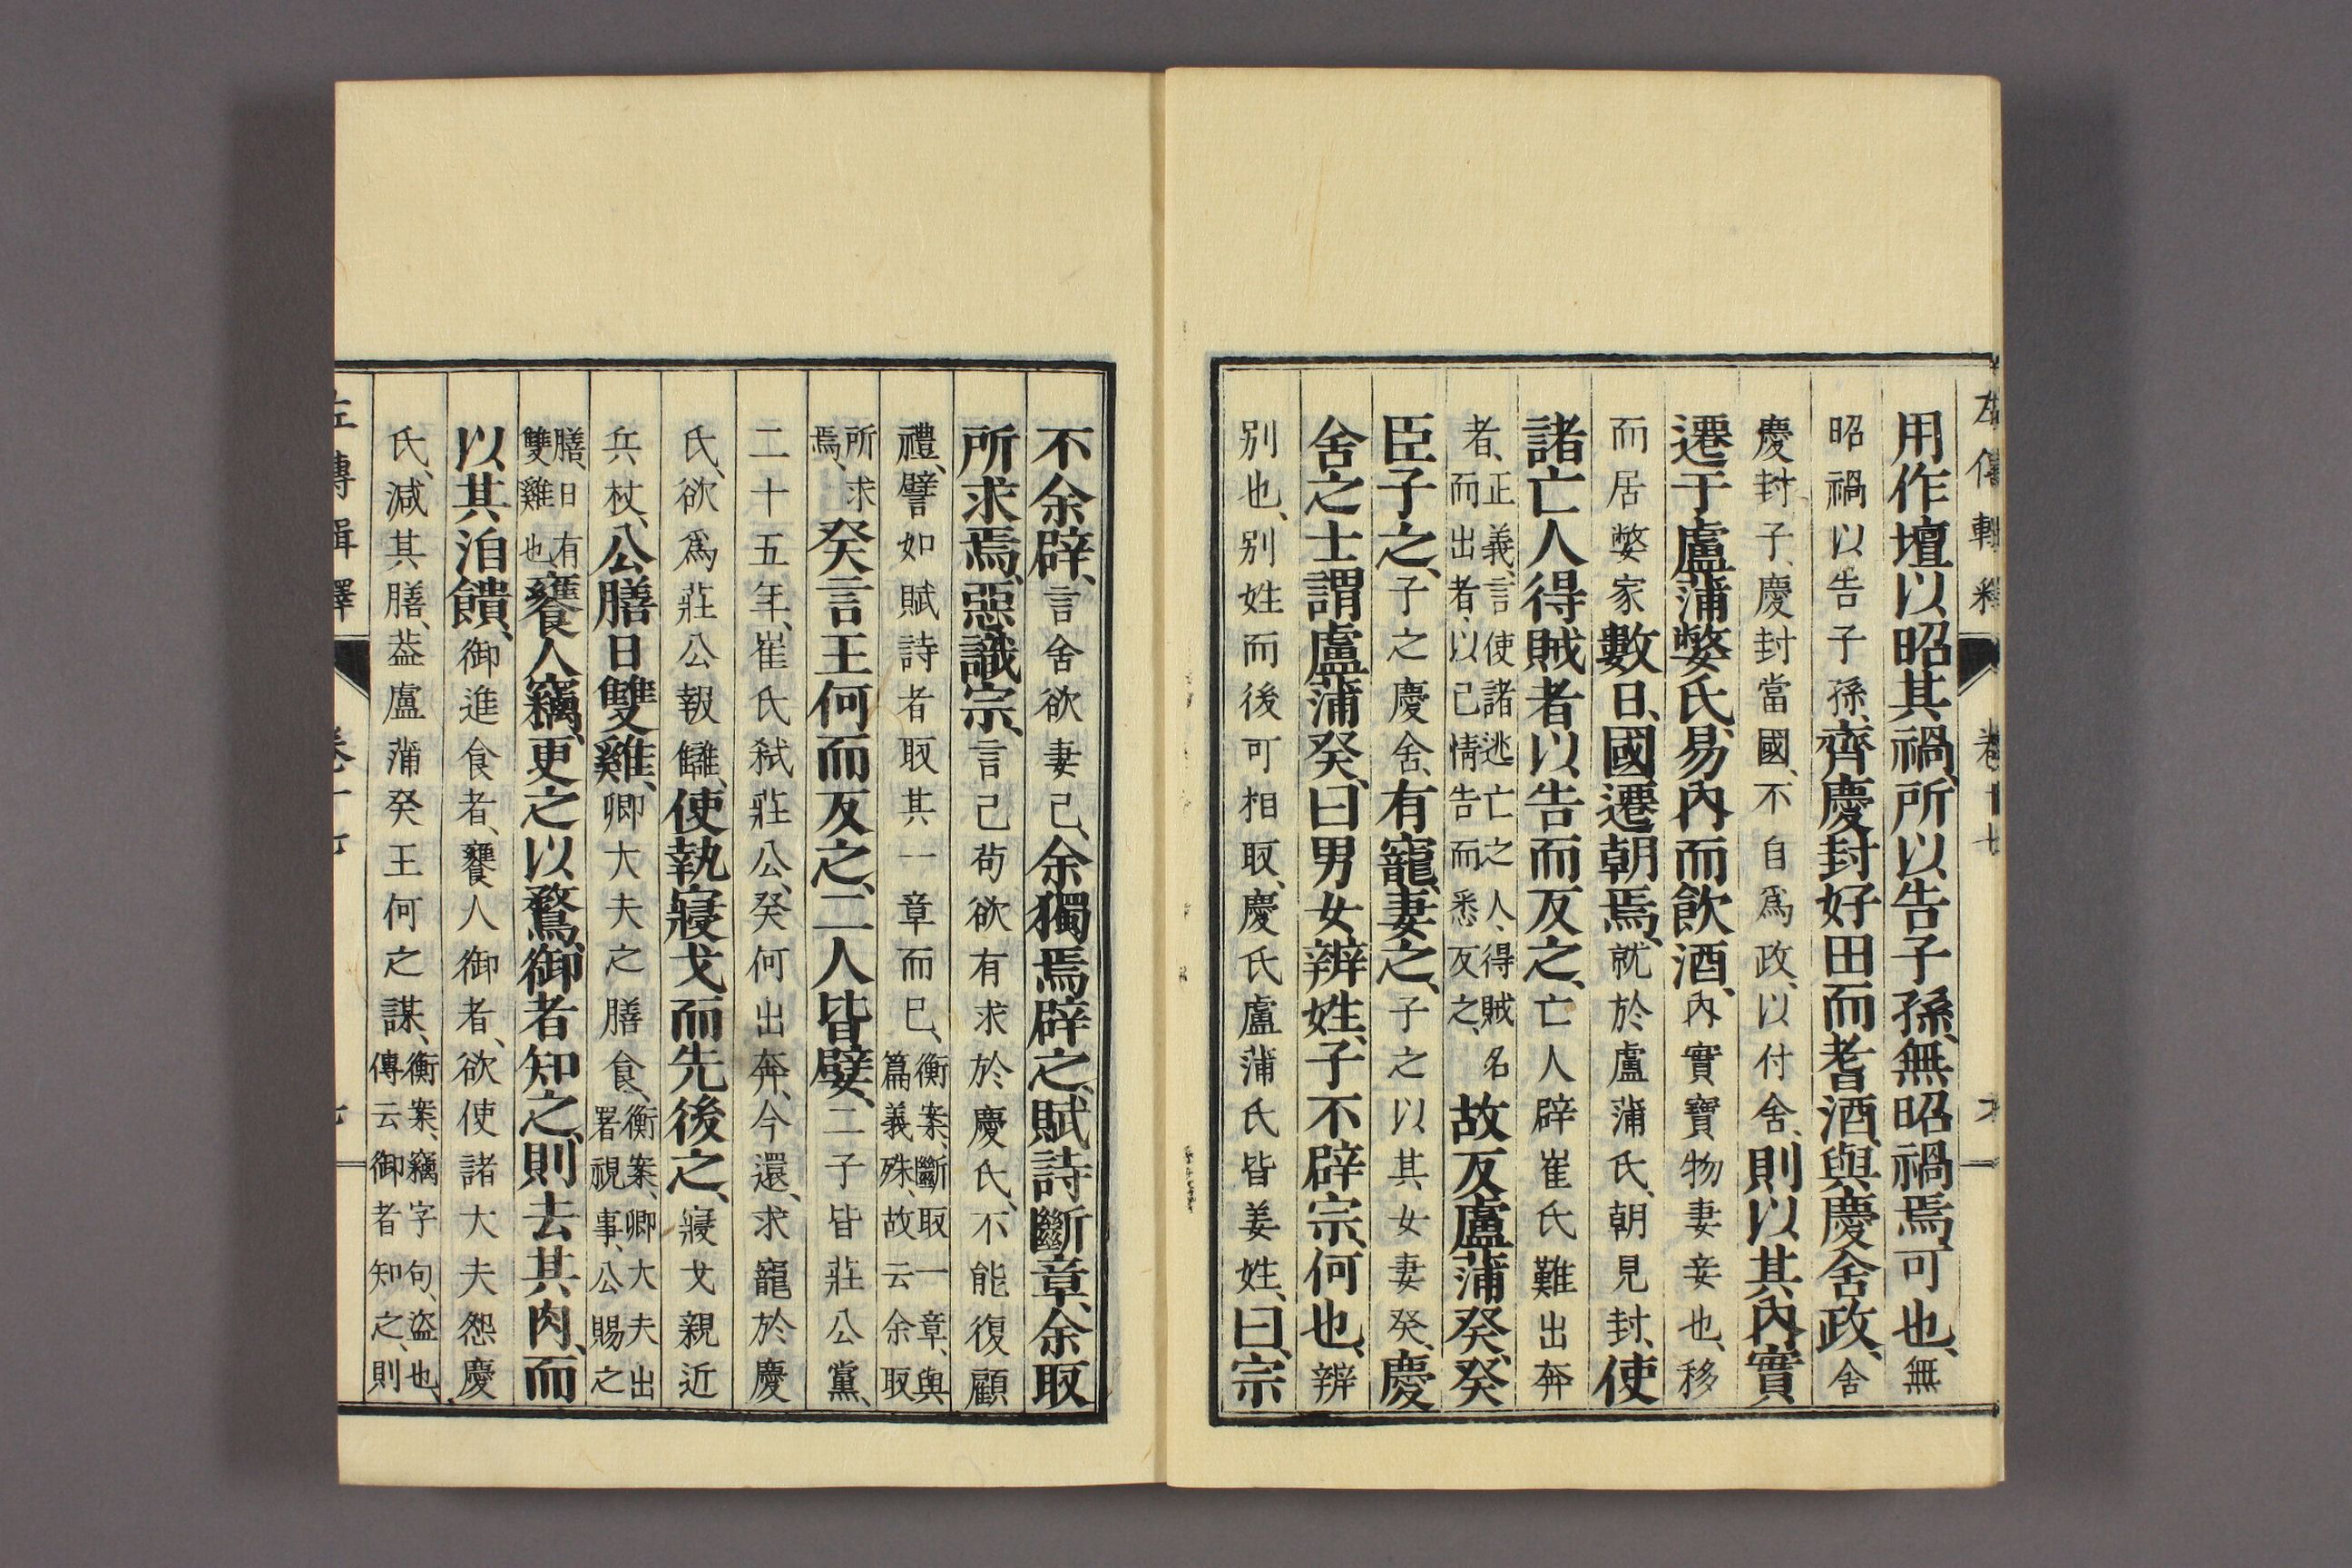 左傳輯釋 卷十七
用作壇以昭其禍、所以告子孫、無昭禍焉、可也、無
昭禍以告子孫、齊慶封好田而耆酒、與慶舍政、舍
慶封子、慶封當國、不自爲政、以付舍、則以其內實
遷于盧蒲嫳氏、易內而飮酒、內實寶物妻妾也、移
而居嫳家數日、國遷朝焉、就於盧蒲氏、朝見封、使
諸亡人得賊者以告而反之、亡人辟崔氏難出奔
者、正義、言使諸逃亡之人、得賊名而出者、以己情告而悉反之、故反盧蒲癸、癸
臣子之、子之慶舍、有寵、妻之、子之以其女妻癸、慶
舍之士謂盧蒲癸、曰男女辨姓、子不辟宗、何也、辨
別也、別姓而後可相取、慶氏盧蒲氏皆姜姓、曰、宗
不余辟、言舍欲妻己、余獨焉辟之、賦詩斷章、余取
所求焉、惡識宗、言己苟欲有求於慶氏、不能復顧
禮、譬如賦詩者取其一章而已、衡案、斷取一章、與篇義殊、故云余取
所求焉、癸言王何而反之、二人皆嬖、二子皆莊公黨、
二十五年、崔氏弑莊公、癸何出奔、今還、求寵於慶
氏、欲爲莊公報讎、使執寢戈而先後之、寢戈親近
兵杖、公膳日雙雞、卿大夫之膳食、衡案、卿大夫出署視事、公賜之
膳、日有雙雞也、饔人竊更之以鶩、御者知之、則去其肉、而
以其洎饋、御進食者、饔人御者、欲使諸大夫怨慶
氏、減其膳、葢盧蒲癸王何之謀、衡案、竊字句、盜也、傳云御者知之、則
左傳輯釋 卷十七 七